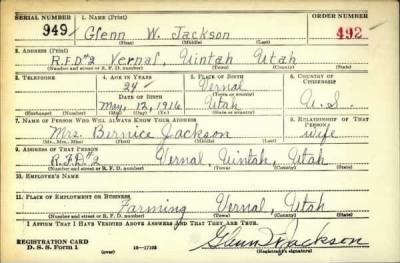 SERIAL NUMBER 1. NAME (Print) ORDER NUMBER
949 Glenn W. Jackson 492
(First) (Middle) (Last)
2. ADDRESS (Print)
R.F.D.#2 Vernal, Uintah Utah
(Number and street or R. F. D. number) (Town) (County) (State)
3. TELEPHONE 4. AGE IN YEARS 5. PLACE OF BIRTH 6. COUNTRY OF CITIZENSHIP
24 Vernal
(Town or county)
DATE OF BIRTH
May, 12, 1916 Utah U.S.
(Exchange) (Number) (Mo.) (Day) (Yr.) (State or country)
7. NAME OF PERSON WHO WILL ALWAYS KNOW YOUR ADDRESS 8. RELATIONSHIP OF THAT PERSON
Mrs. Bernice Jackson wife
(Mr., Mrs., Miss) (First) (Middle) (Last)
9. ADDRESS OF THAT PERSON
R.F.D.#2 Vernal, Uintah, Utah
(Number and street or R. F. D. number) (Town) (County) (State)
10. EMPLOYER'S NAME
11. PLACE OF EMPLOYMENT OR BUSINESS
Farming Vernal, Utah
(Number and street or R. F. D. number) (Town) (County) (State)
I AFFIRM THAT I HAVE VERIFIED ABOVE ANSWERS AND THAT THEY ARE TRUE.
REGISTRATION CARD Glenn W Jackson
D. S. S. Form 1 (over) 16—17105 (Registrant's signature)